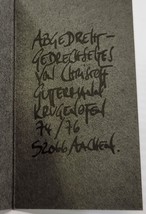 ABGEDREHT–
GEDRECHSELTES
VON CHRISTOPH
GUTERMANN
KRUGENOFEN
74/76
52066 AACHEN.